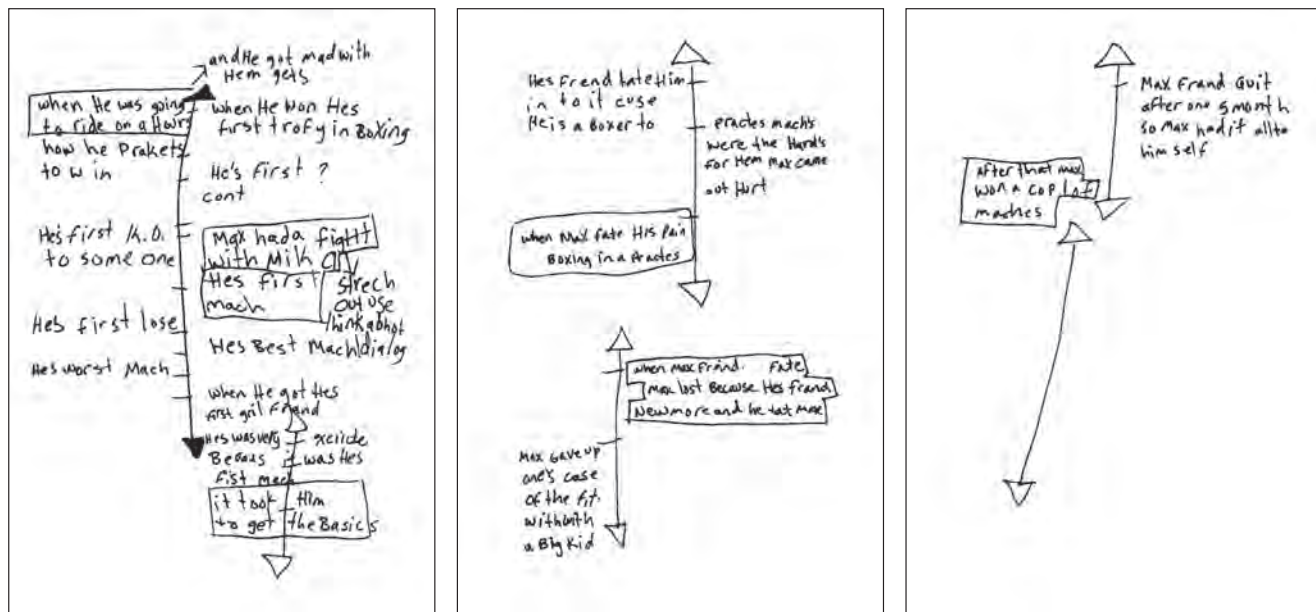 and He got mad with
Hem gets
when He was going
to ride on a Hours
how he Prakets
to w in
He's first K.O.
to some one
Hes first lose
Hes worst Mach
when He won Hes
first trofy in Boxing
He's First ?
cont
Max had a fight
with Milk
Hes first
mach
strech
out use
think abhot
dialog
Hes Best Mach
when He got Hes
First gril Frand
Hes was very exciide
Becaus it was Hes
fist mach
it took Him
to get the Basics
Hes Frend tateHim
in to it cuse
He is a Boxer to
Practes mach's
were the Hard's
for Hem Max came
out Hurt
when Max fate His Pain
Boxing in a Practes
when Max Frand. Fate
Max lost Because Hes frand
New more and he tat Max
Max Gave up
one's case
of the fit.
with with
a Big Kid
Max Frand Quit
after one 5 month
so Max had it all to
him self
After that Max
won a cop lof
maches